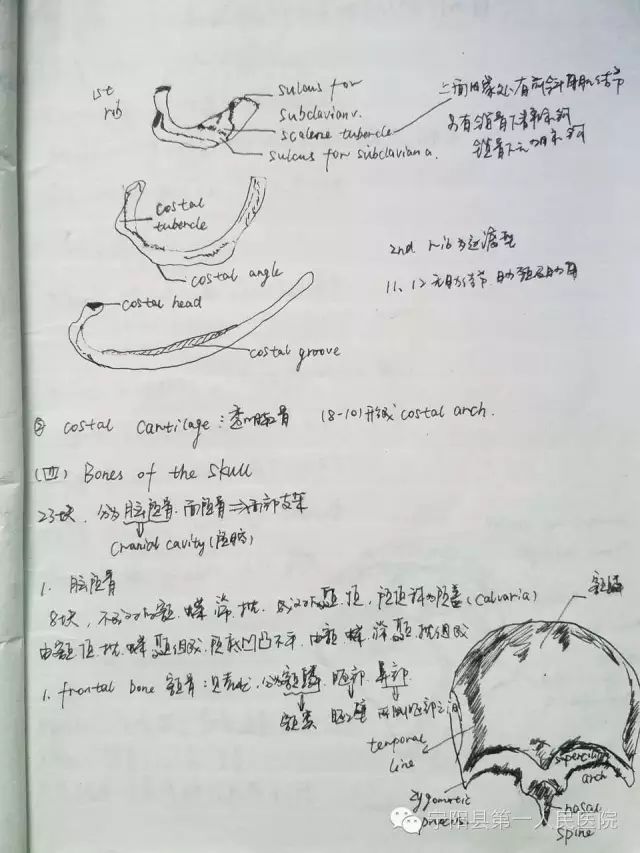 1st rib
sulcus for
subclavian v.
scalene tubercle
sulcus for subclavian a.
上面内缘处有前斜角肌结节
另有锁骨下静脉沟
锁骨下动脉沟
costal
tubercle
costal angle
2nd rib为过渡型
11、12无肋结节、肋颈及肋角
costal head
costal groove
costal cartilage:透明软骨 (8-10)形成 costal arch.
(四) Bones of the skull
23块,分为脑颅骨.面颅骨⇒面部支架
cranial cavity(颅腔)
1. 脑颅骨
8块,不成对为额.蝶.筛.枕.成对为颞.顶,颅顶称为颅盖(calvaria)
由额.顶.枕.蝶.颞组成.颅底凹凸不平.由额.蝶.筛.颞.枕组成
1. frontal bone 额骨:贝壳形.分为额鳞.眶部.鼻部.
额窦 眶上壁 两侧眶部之间
额结
temporal
line
superciliary
arch
zygomatic
process
nasal
spine
安阳县第一人民医院